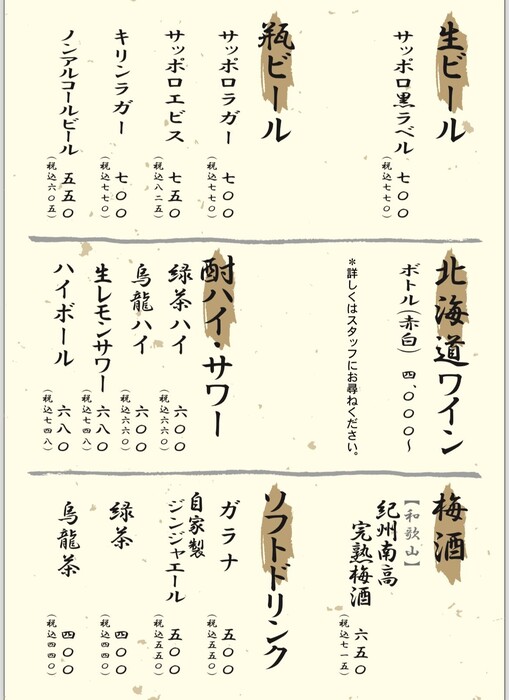 生ビール
サッポロ黒ラベル 七〇〇
(税込七七〇)
瓶ビール
サッポロラガー 七〇〇
(税込七七〇)
サッポロエビス 七五〇
(税込八二五)
キリンラガー 七〇〇
(税込七七〇)
ノンアルコールビール 五五〇
(税込六〇五)
北海道ワイン
ボトル(赤白) 四、〇〇〇〜
*詳しくはスタッフにお尋ねください。
酎ハイ・サワー
緑茶ハイ 六〇〇
(税込六六〇)
烏龍ハイ 六〇〇
(税込六六〇)
生レモンサワー 六八〇
(税込七四八)
ハイボール 六八〇
(税込七四八)
梅酒
【和歌山】
紀州南高
完熟梅酒 六五〇
(税込七一五)
ソフトドリンク
ガラナ 五〇〇
(税込五五〇)
自家製
ジンジャエール 五〇〇
(税込五五〇)
緑茶 四〇〇
(税込四四〇)
烏龍茶 四〇〇
(税込四四〇)